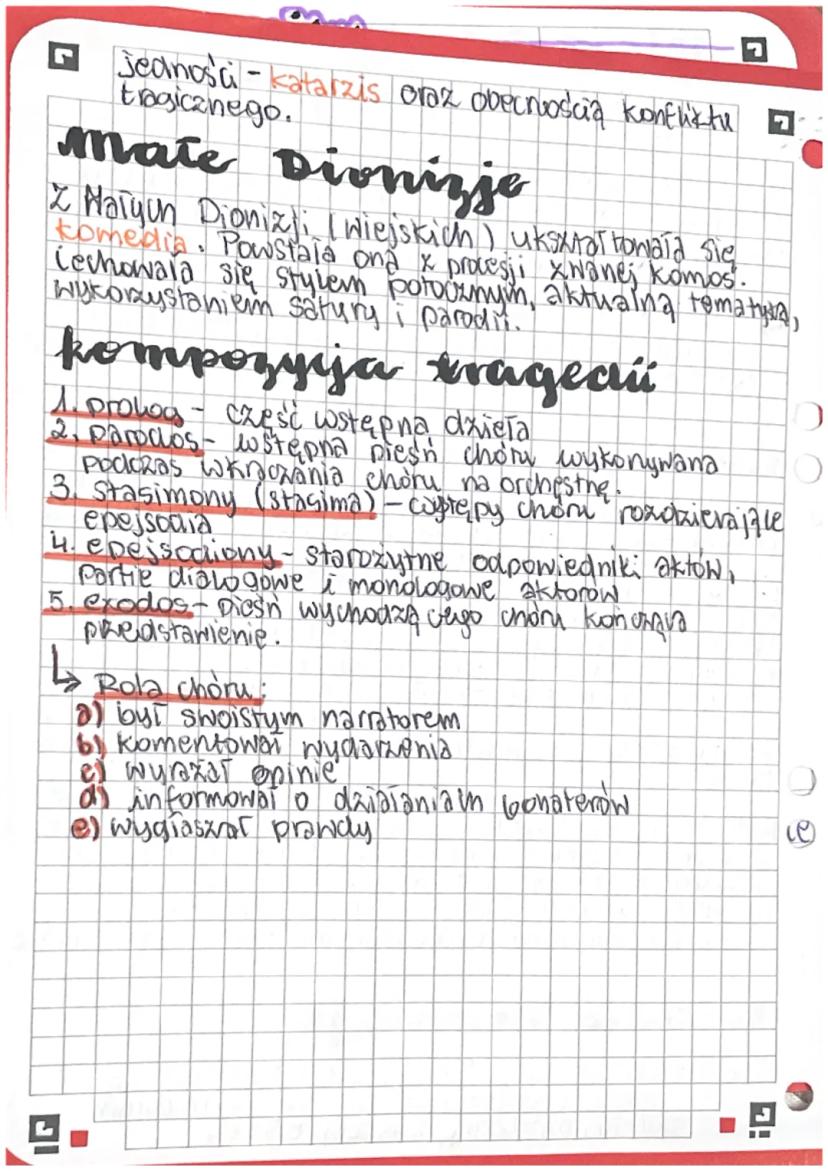 jedności - katarzis oraz obecnością konfliktu
tragicznego.
Małe Dionizje
Z Małych Dionizji (wiejskich) ukształtowała się
komedia. Powstała ona z procesji zwanej komos.
Cechowała się stylem potocznym, aktualną tematyką,
wykorzystaniem satyry i parodii.
kompozycja tragedii
1. prolog - część wstępna dzieła
2. parodos - wstępna pieśń chóru wykonywana
podczas wkraczania chóru na orchestrę.
3. stasimony (stasima) - występy chóru rozdzierające
epejsodia
4. epejsodiony - starożytne odpowiedniki aktów,
partie dialogowe i monologowe aktorów
5. exodos - pieśń wychodzącego chóru kończąca
przedstawienie.
↳ Rola chóru:
a) był swoistym narratorem
b) komentował wydarzenia
c) wyrażał opinie
d) informował o działaniach bohaterów
e) wygłaszał prawdy